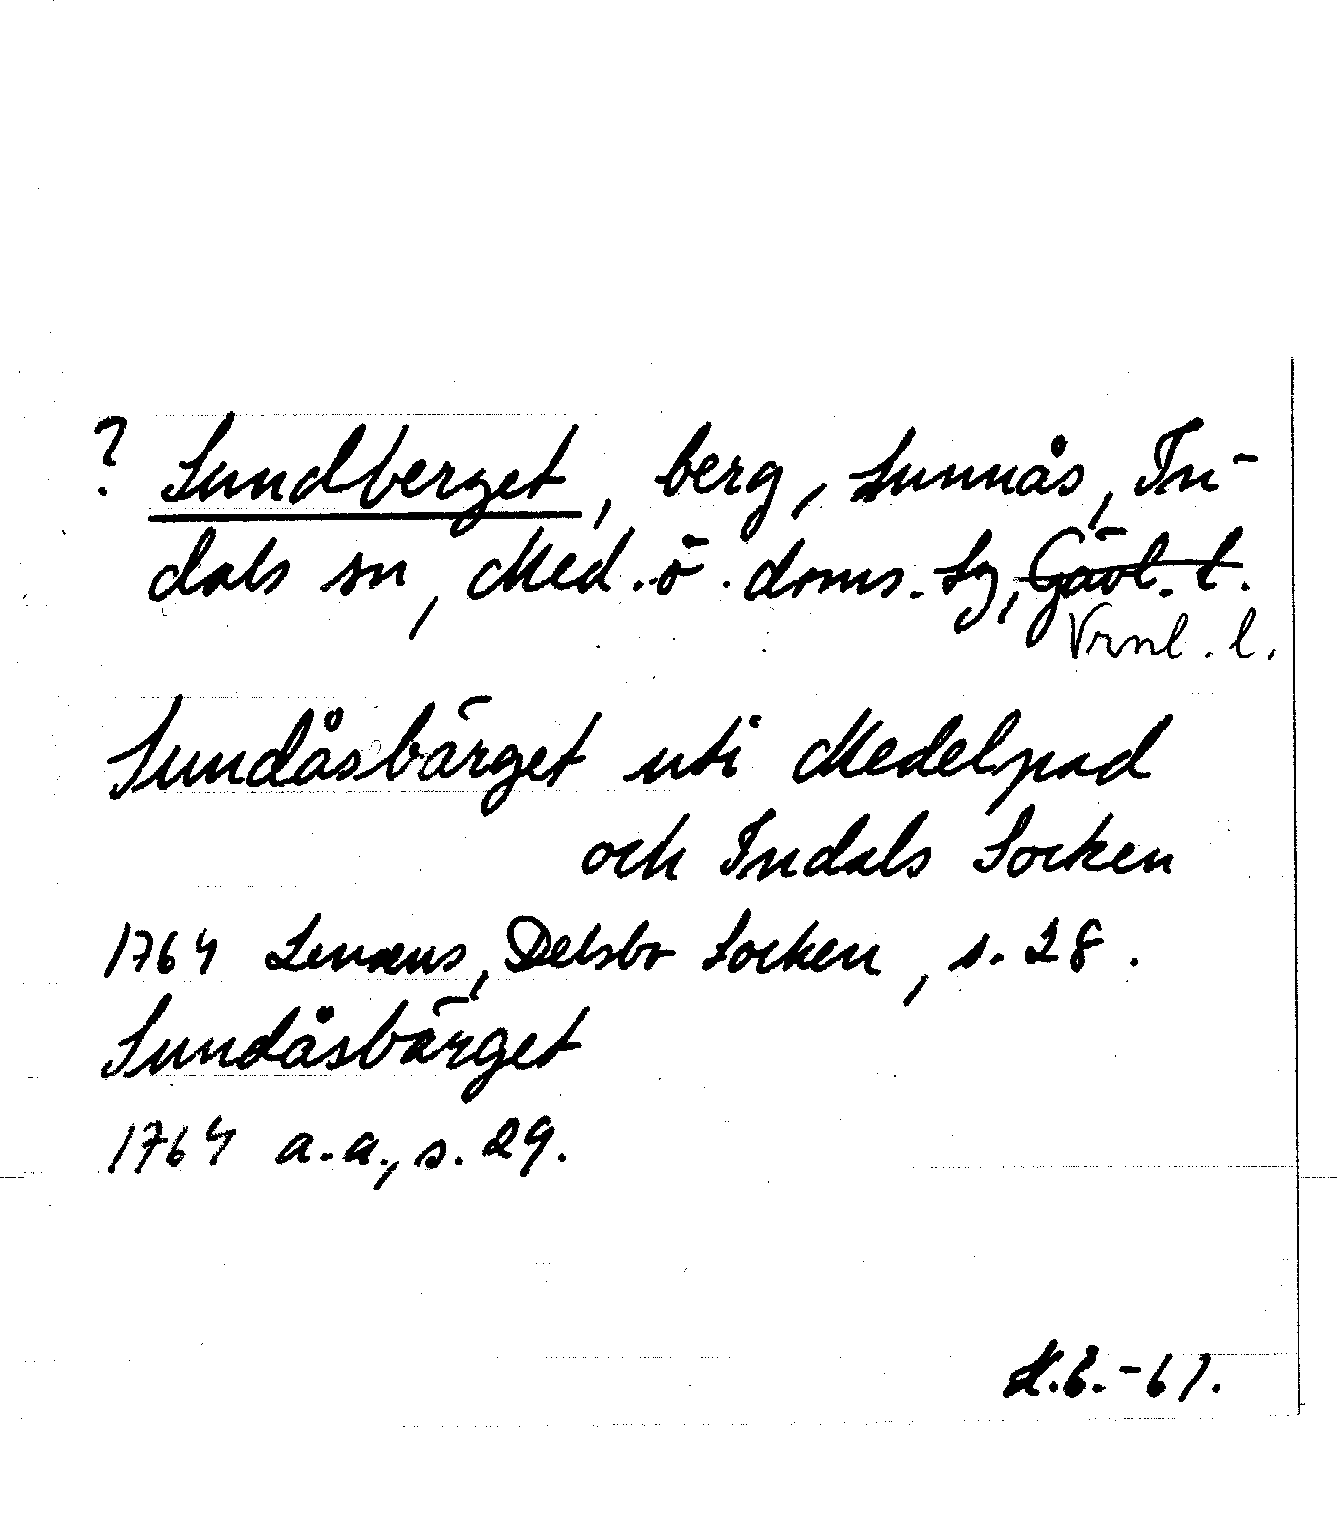 ? Sundberget, berg, Sunnås, In-
dals sn, Med. ö. doms. sg, Gävl. l.
Vrnl. l.
Sundåsbärget uti Medelpad
och Indals Socken
1764 Lenæus, Delsbo Socken, s. 28.
Sundåsbärget
1764 a.a., s. 29.
-61.